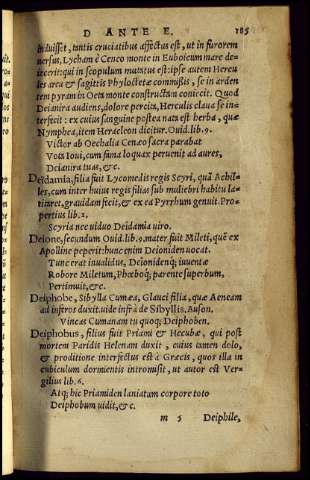 D ANTE E. 185
induisset, tantis cruciatibus affectus est, ut in furorem
uersus, Lycham è Cenæo monte in Euboicum mare de-
iecerit: qui in scopulum mutatus est: ipse autem Hercu
les arcu & sagittis Phyloctetæ commissis, se in arden
tem pyram in Oeta monte constructam coniecit. Quod
Deianira audiens, dolore percita, Herculis claua se in=
terfecit: ex cuius sanguine postea nata est herba, quæ
Nymphea, item Heracleon dicitur. Ouid. lib. 9.
Victor ab Oechalia Cenæo sacra parabat
Vota Ioui, cum fama loquax peruenit ad aures,
Deianira tuas, &c.
Deidamia, filia fuit Lycomedis regis Scyri, quã Achil-
les, cum inter huius regis filias sub muliebri habitu la-
titaret, grauidam fecit, & ex ea Pyrrhum genuit. Pro-
pertius lib. 2.
Scyria nec uiduo Deidamia uiro.
Deione, secundum Ouid. lib. 9. mater fuit Mileti, quẽ ex
Apolline peperit: hunc enim Deioniden uocat.
Tunc erat inualidus, Deionidenq; iuuentæ
Robore Miletum, Phœboq; parente superbum,
Pertimuit, &c.
Deiphobe, Sibylla Cumæa, Glauci filia, quæ Aeneam
ad inferos duxit. uide infrà de Sibyllis. Auson.
Vincas Cumanam tu quoq; Deiphoben.
Deiphobus, filius fuit Priami & Hecubæ, qui post
mortem Paridis Helenam duxit, cuius tamen dolo,
& proditione interfectus est à Græcis, quos illa in
cubiculum dormientis intromisit, ut autor est Ver-
gilius lib. 6.
Atq; hic Priamiden laniatum corpore toto
Deiphobum uidit, &c.
m 5 Deiphile,